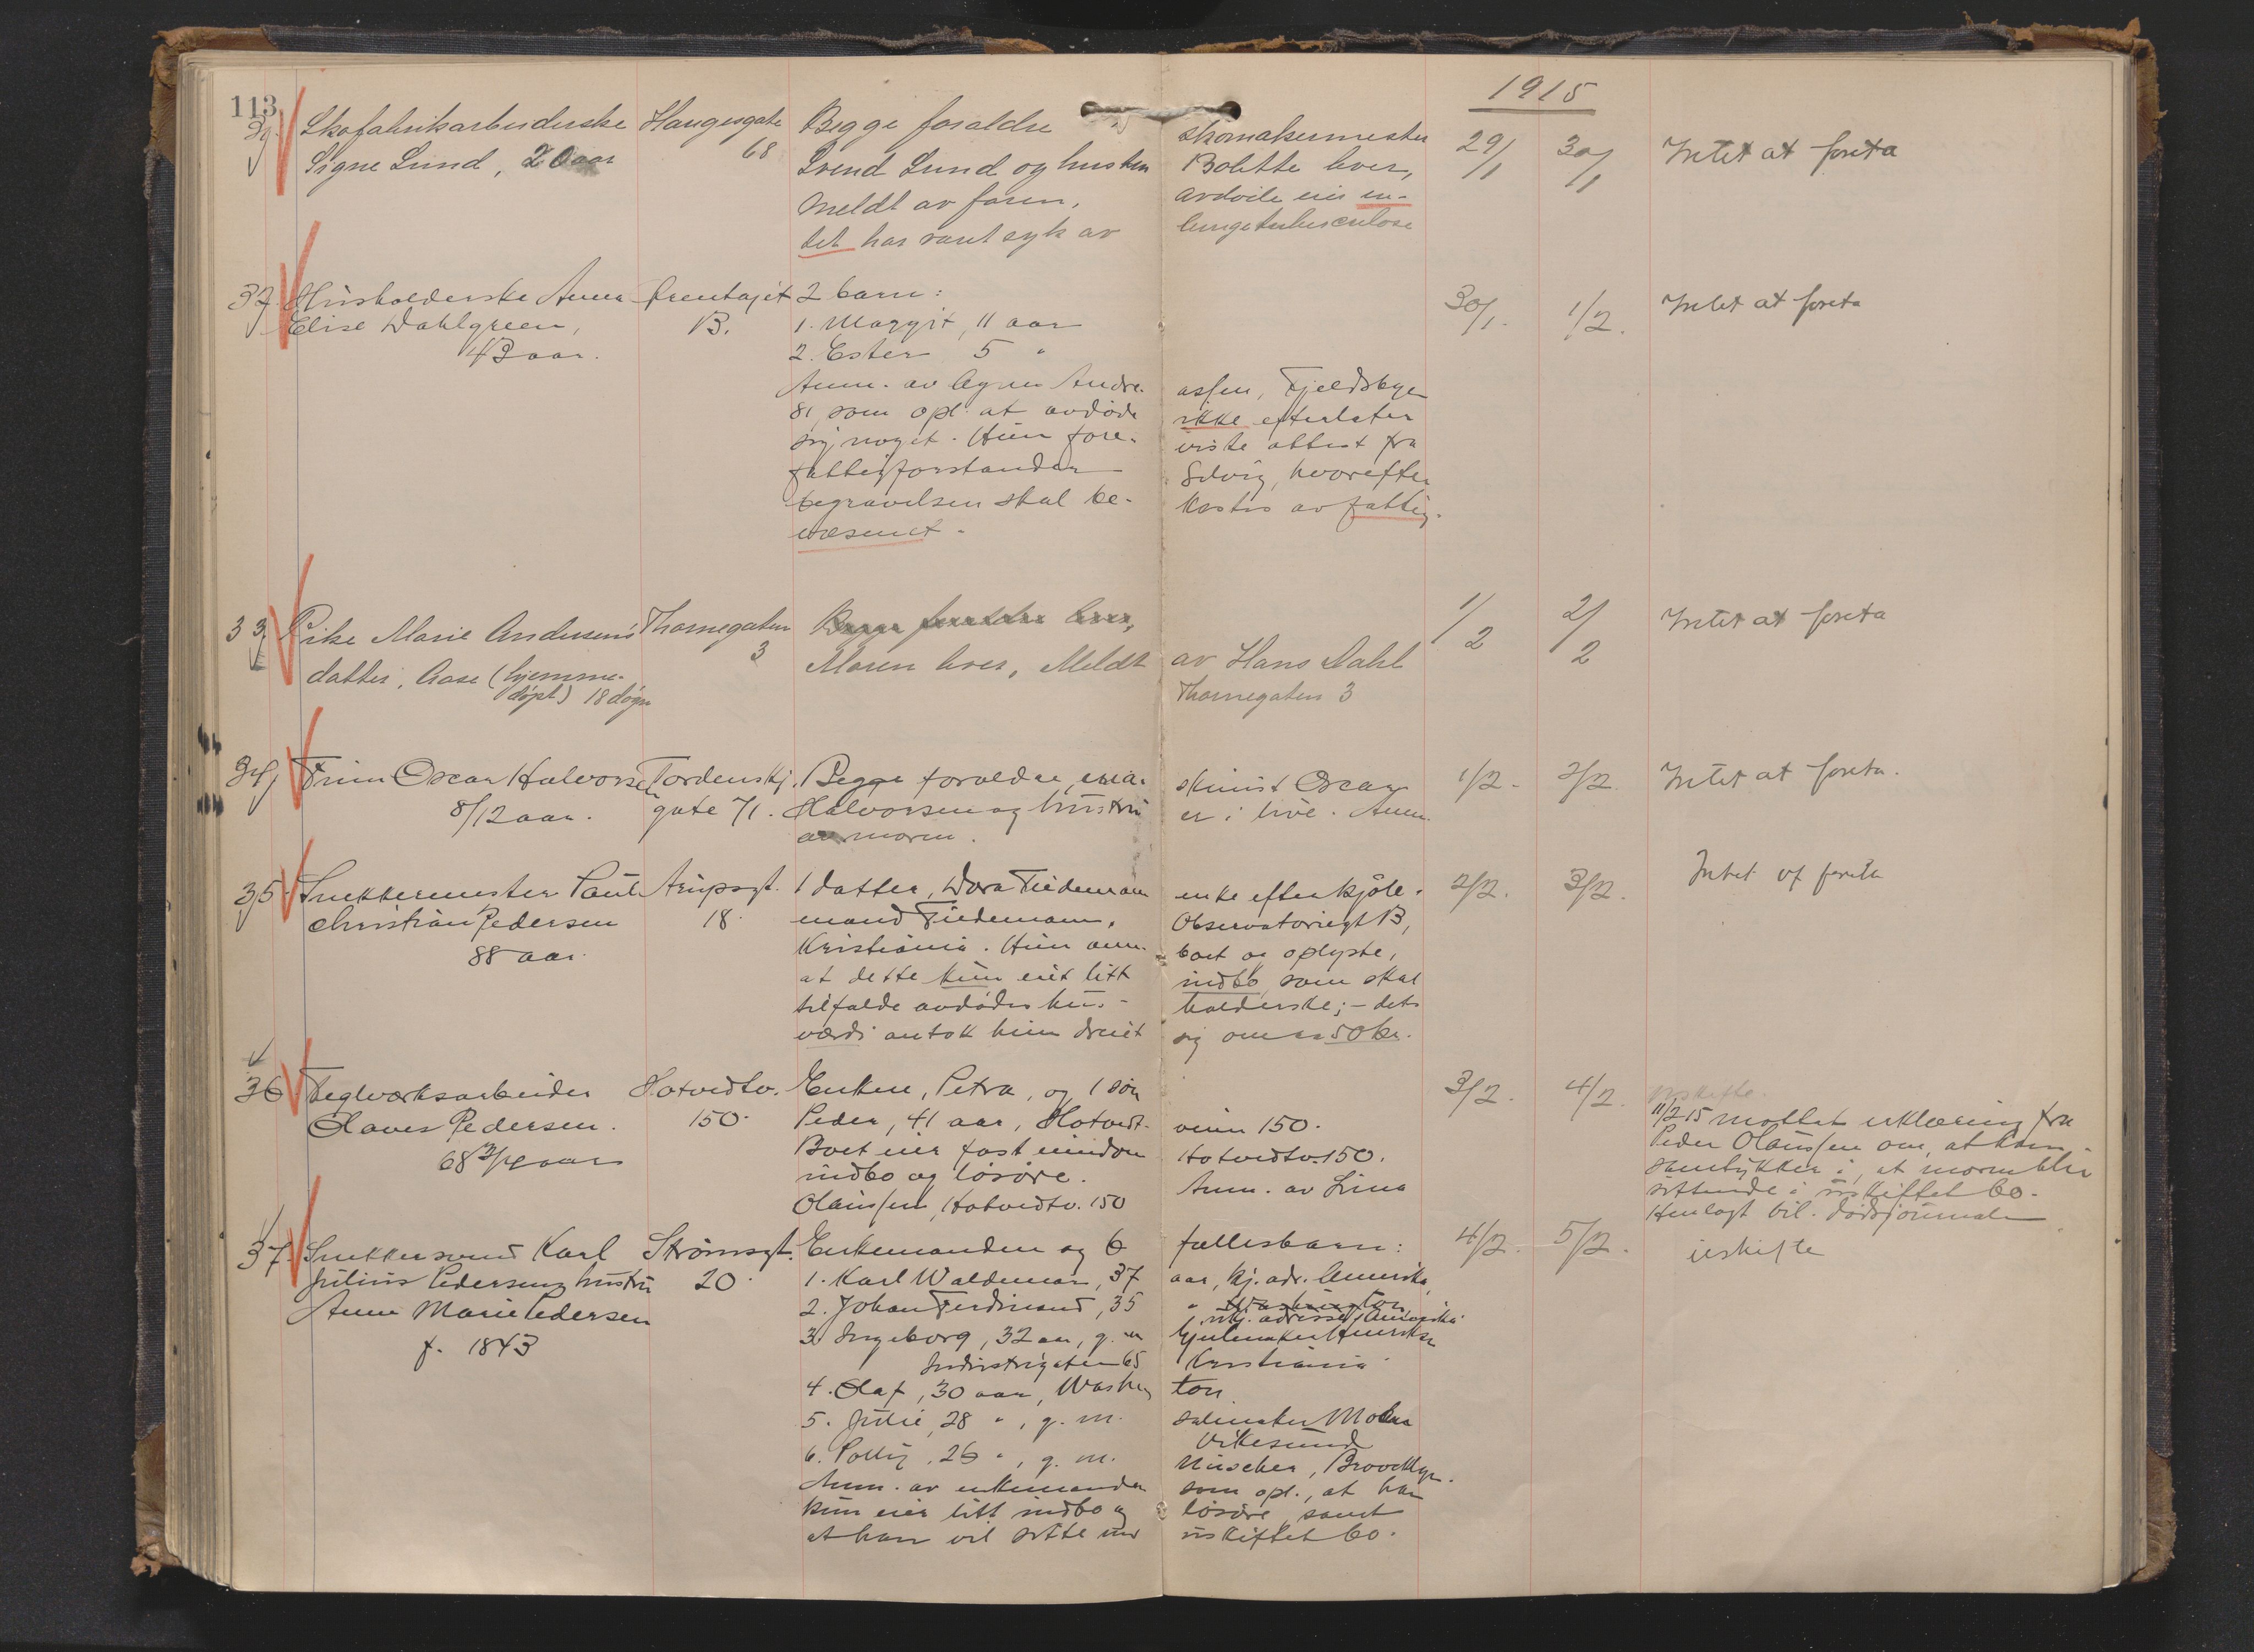 113
1915
Skofabrikarbeiderske Haugesgate Begge foraldre skomakermester 29/1 30/1 Intet at foreta
Signe Lund, 20 aar 68 Svend Lund og hustru Bolette lever,
Meldt av faren, avdöde eier in-
tet har vært syk av lungetuberculose
32 Husholderske Anna 2 barn: 30/1. 1/2. Intet at foreta
Elise Dahlgreen, B. 1. Margit, 11 aar
43 aar. 2. Ester 5 "
Anm. av Agnes Andre- assen, Fjeldsbye
81, som opl. at avdöde ikke efterlater
sig noget. Hun fore- viste attest fra
fattigforstander Selvig, hvorefter
begravelsen skal be- kostes av fattig-
væsenet.
33 Pike Marie Andersens Thornegaten Begge foraldre lever, 1/2 2/2 Intet at foreta
datter, Aase (hjemme- 3 Moren lever, Meldt av Hans Dahl
döpt) 18 døgn Thornegaten 3
34 Finn Oscar Halvorsen Tordenskj. Begge foraldre, ma- skinist Oscar 1/2. 2/2 Intet at foreta.
8/12 aar. gate 71. Halvorsen og hustru er i live. Anm.
av moren.
35 Snekkermester Paul Arupsgt. 1 datter, Dora Tiedemann enke efter kjöle- 2/2. 3/2. Intet at foreta
Christian Pedersen 18. mand Tiedemann, Observatoriegt B,
88 aar. Kristiania. Hun anm. boet og oplyste,
at dette kun eiet litt indbo, som skal
tilfalde avdödes hus- holderske; - dets
værdi antok hun dreiet sig om ca 50 kr.
36 Teglværksarbeider Hotvedtv. Enken, Petra, og 1 sön 3/2. 4/2. Uskifte.
Olaves Pedersen. 150. Peder, 41 aar, Hotvedt- veien 150. 11/2 15 mottat erklæring fra
68 3/4 aar Boet eier fast eiendom Hotvedtv. 150. Peder Olaussen om, at han
indbo og lösöre. Anm. av Lina samtykker i, at moren blir
Olaussen, Hotvedtv. 150 sittende i uskiftet bo.
Henlagt vil. dödsjournalen
37. Snekkersvend Karl Strömsgt. Enkemanden og 6 fællesbarn: 4/2. 5/2. uskifte
Julius Pedersens hustru 20. 1. Karl Waldemar, 37 aar, kj. adr. Amerika,
Anne Marie Pedersen 2. Johan Ferdinand, 35 " Washington
f. 1843 ukj. adresse, Amerika
3. Ingeborg, 32 aar, g. m. Hjulmaker Henriksen
Industrigaten 65 Kristiania
4. Olaf, 30 aar, Washing ton
5. Julie, 28 ", g. m. salmaker Moen
Vikesund
6. Polly, 26 ", g. m. Brooklyn.
Anm. av enkemanden som opl., at han
kun eier litt indbo og lösöre, samt
at han vil sitte med uskiftet bo.